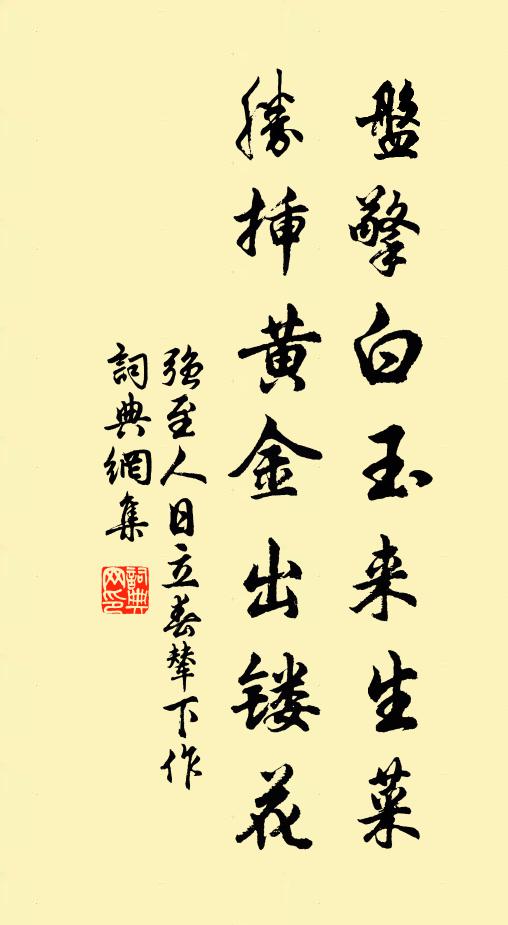 盤擎白玉来生菜
勝挿黄金出镂花
强至人日立春辇下作
詞典網集
詞典网印